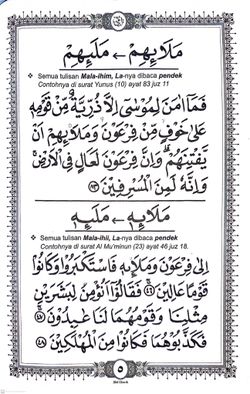 مَلَائِهِمْ ← مَلَئِهِمْ
❖ Semua tulisan Mala-ihim, La-nya dibaca pendek
Contohnya di surat Yunus (10) ayat 83 juz 11
فَمَآ اٰمَنَ لِمُوْسٰىٓ اِلَّا ذُرِّيَّةٌ مِّنْ قَوْمِهٖ
عَلٰى خَوْفٍ مِّنْ فِرْعَوْنَ وَمَلَا۟ئِهِمْ اَنْ
يَّفْتِنَهُمْ ۗ وَاِنَّ فِرْعَوْنَ لَعَالٍ فِى الْاَرْضِۚ
وَاِنَّهٗ لَمِنَ الْمُسْرِفِيْنَ ﴿٨٣﴾
مَلَائِهٖ ← مَلَئِهٖ
❖ Semua tulisan Mala-ihii, La-nya dibaca pendek
Contohnya di surat Al Mu'minun (23) ayat 46 juz 18.
اِلٰى فِرْعَوْنَ وَمَلَا۟ئِهٖ فَاسْتَكْبَرُوْا وَكَانُوْا
قَوْمًا عَالِيْنَ ﴿٤٦﴾ فَقَالُوْٓا اَنُؤْمِنُ لِبَشَرَيْنِ
مِثْلِنَا وَقَوْمُهُمَا لَنَا عٰبِدُوْنَ ﴿٤٧﴾
فَكَذَّبُوْهُمَا فَكَانُوْا مِنَ الْمُهْلَكِيْنَ ﴿٤٨﴾
٥